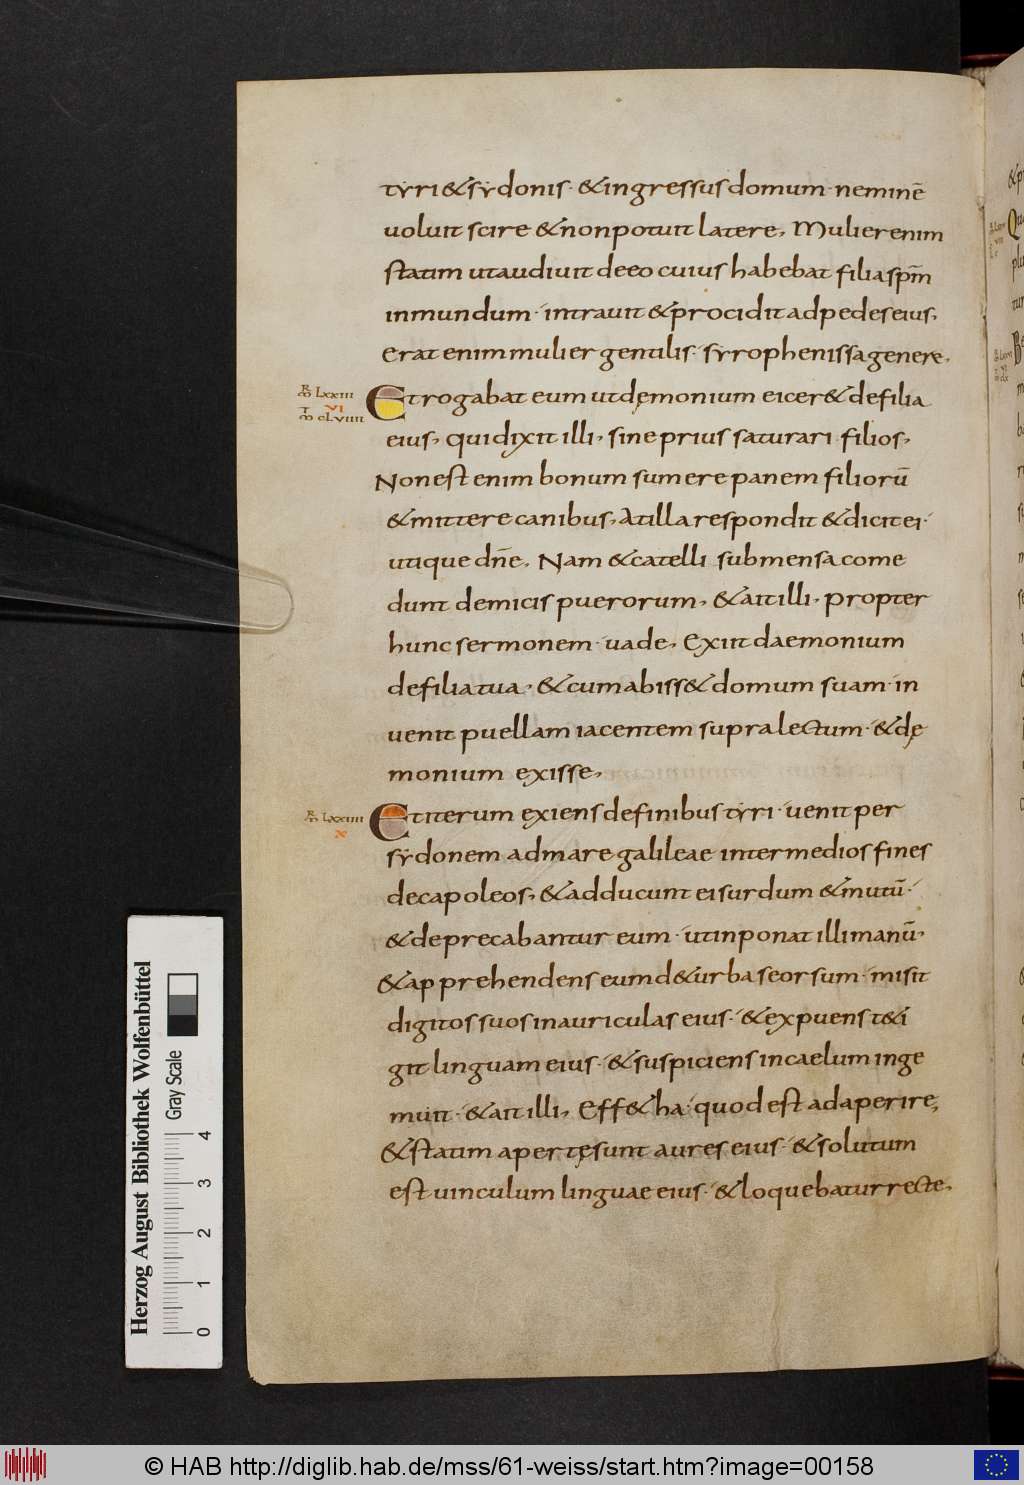 tyri & sydonis · & ingressus domum · neminē
uoluit scire & non potuit latere, Mulier enim
statim ut audiuit de eo cuius habebat filia spm̄
inmundum · intrauit & procidit ad pedes eius,
erat enim mulier gentilis · syrophenissa genere,
R̄
m̄ LXXIII
VI
T̄
m̄ CLVIIII
Et rogabat eum ut dęmonium eicer& de filia
eius, qui dixit illi, sine prius saturari filios,
Non est enim bonum sumere panem filiorū
& mittere canibus, At illa respondit & dicit ei ·
utique dn̄e, Nam & catelli sub mensa come
dunt de micis puerorum, & ait illi, propter
hunc sermonem · uade, Exiit daemonium
de filia tua, & cum abiss& domum suam · in
uenit puellam iacentem supra lectum · & dę
monium exisse,
R̄
m̄ LXXIIII
X
Et iterum exiens de finibus tyri · uenit per
sydonem ad mare galileae inter medios fines
decapoleos, & adducunt ei surdum & mutū ·
& deprecabantur eum · ut inponat illi manū,
& apprehendens eum de turba seorsum · misit
digitos suos in auriculas eius · & expuens t&i
git linguam eius · & suspiciens in caelum inge
muit · & ait illi, Eff&ha · quod est adaperire,
& statim apertę sunt aures eius · & solutum
est uinculum linguae eius · & loquebatur recte,
Herzog August Bibliothek Wolfenbüttel
Gray Scale
0 1 2 3 4
© HAB http://diglib.hab.de/mss/61-weiss/start.htm?image=00158